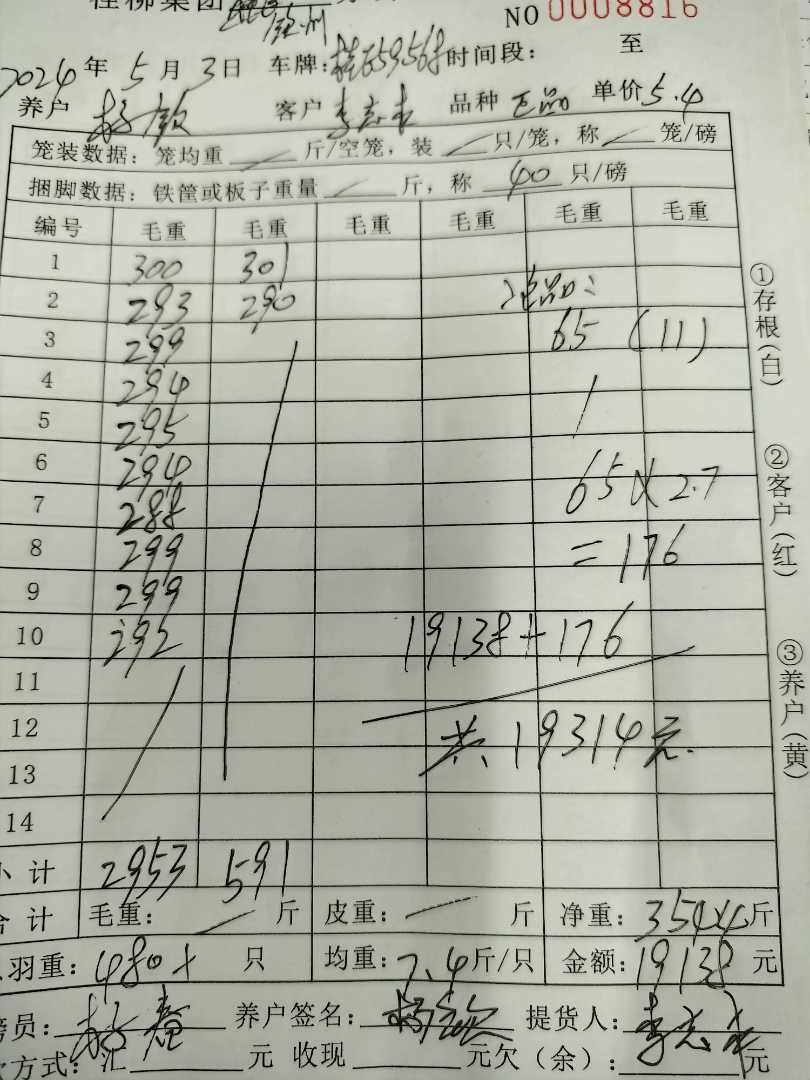 桂柳集团 钦州
NO 0008816
2024年5月3日 车牌: 59568 时间段: 至
养户 客户 品种 正品 单价5.4
笼装数据: 笼均重 / 斤/空笼, 装 / 只/笼, 称 / 笼/磅
捆脚数据: 铁筐或板子重量 / 斤, 称 40 只/磅
编号 毛重 毛重 毛重 毛重 毛重 毛重
1 300 301
2 293 290 品:
3 299 65 (11)
4 294
5 295
6 294 65×2.7
7 288
8 299 =176
9 299
10 292 19138+176
11
12 共19314元
13
14
小计 2953 591
合计 毛重: / 斤 皮重: / 斤 净重: 3544斤
羽重: 480+ 只 均重: 7.4斤/只 金额: 19138元
磅员: 养户签名: 提货人:
方式: 汇 元 收现 元欠(余): 元
①存根(白)
②客户(红)
③养户(黄)